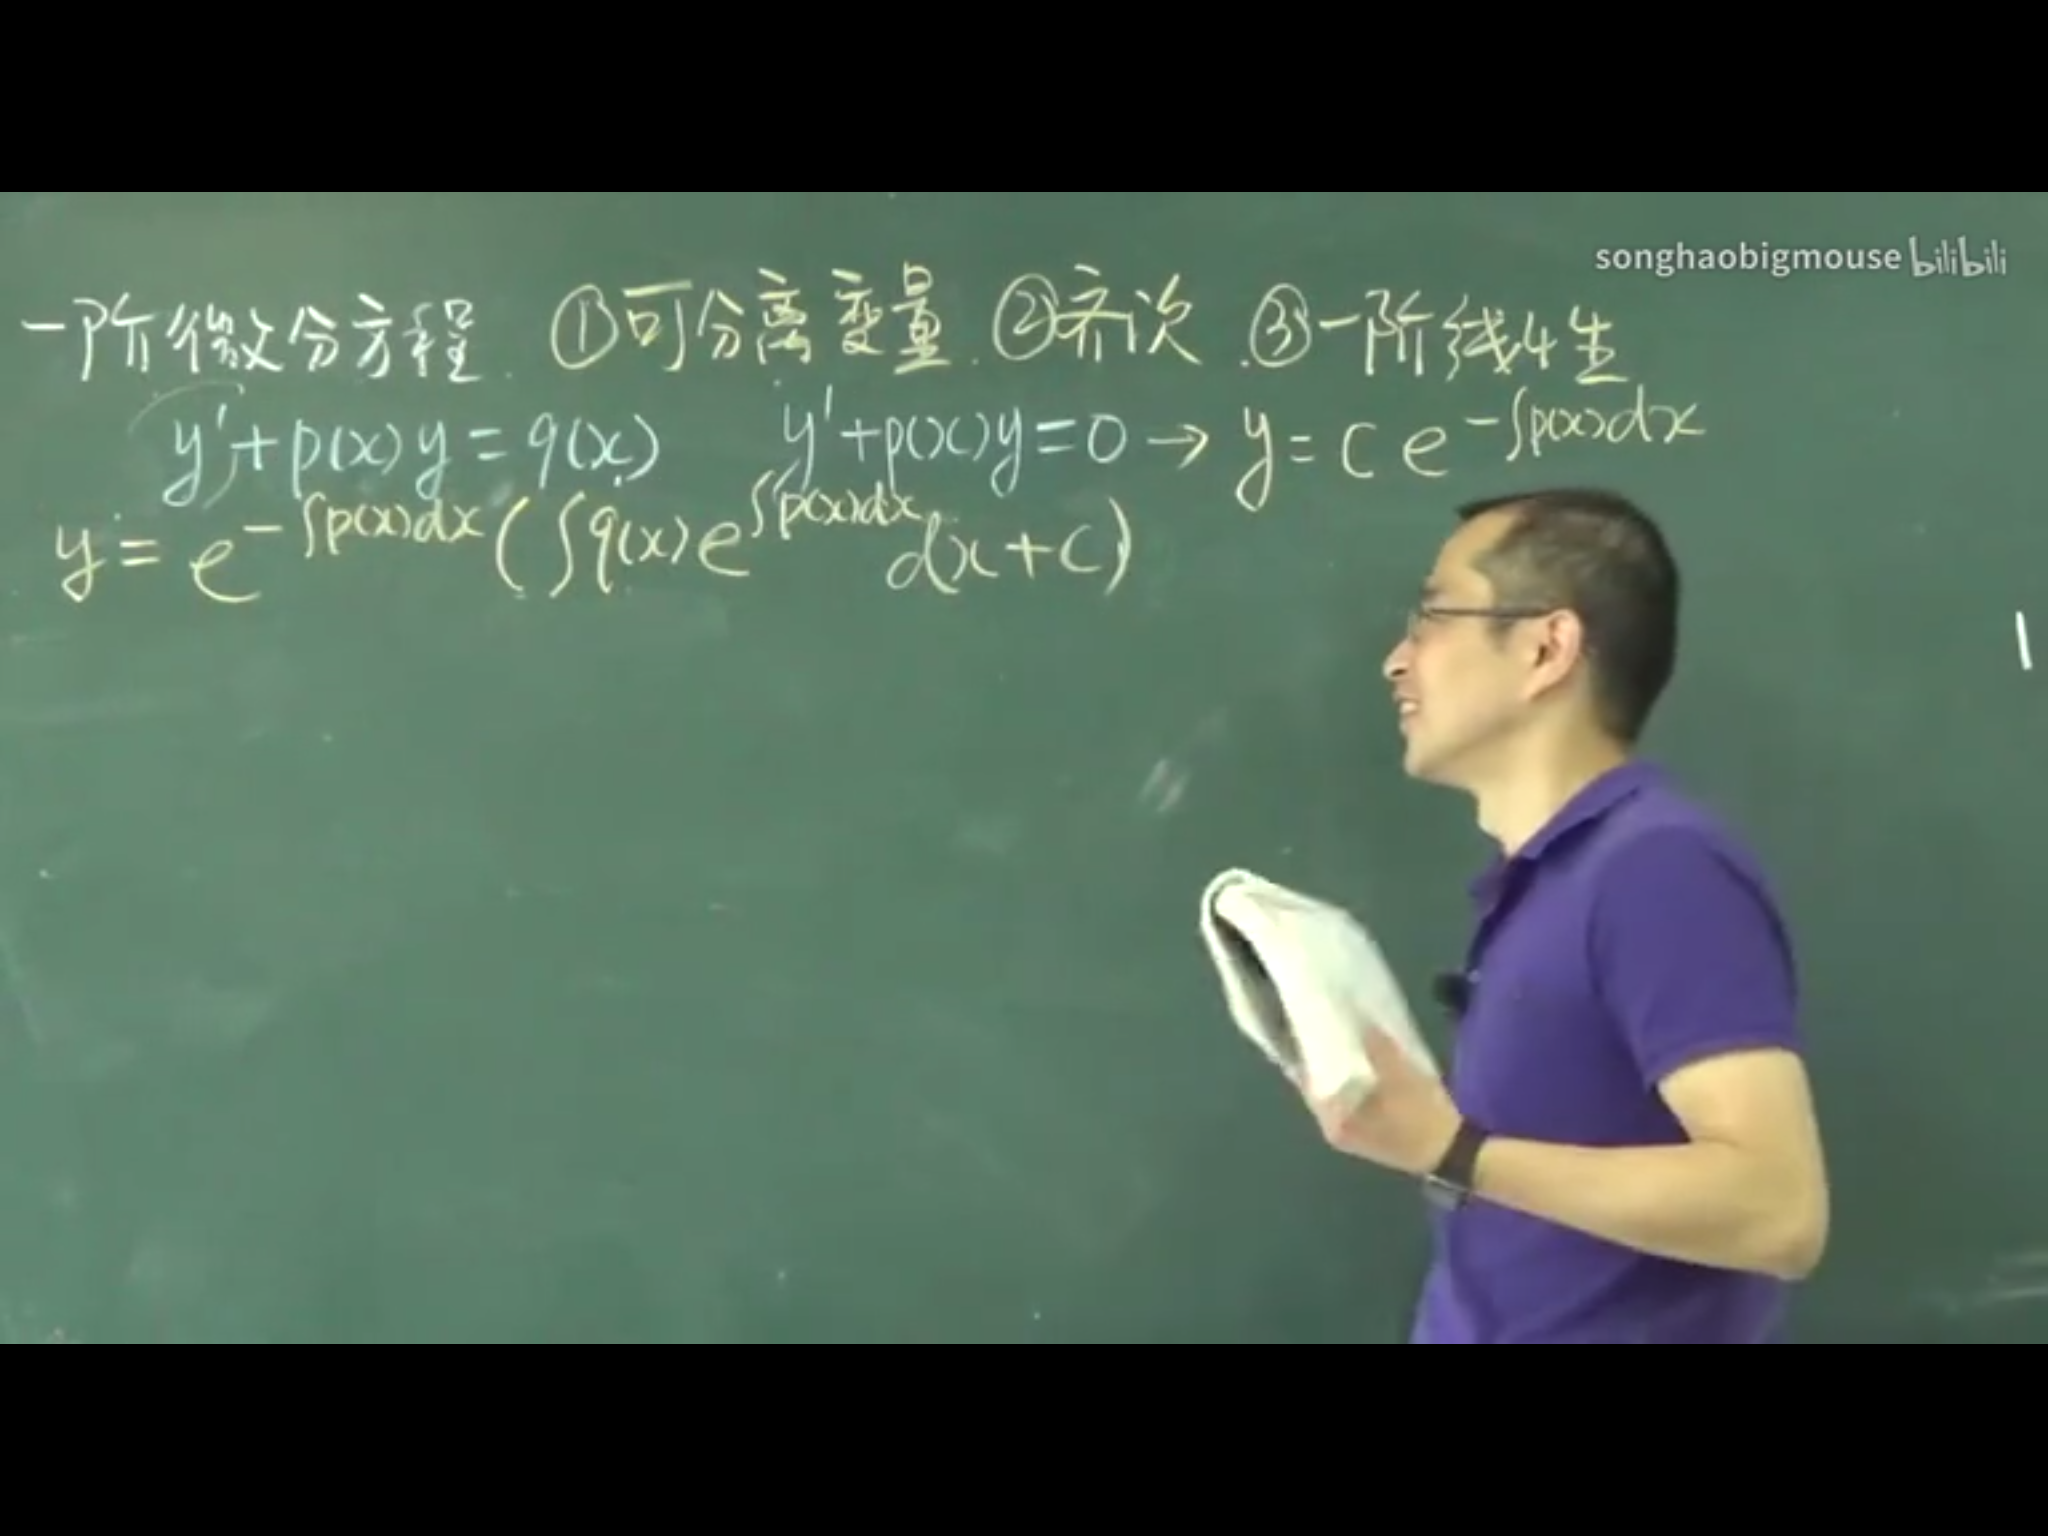 songhaobigmouse bilibili
一阶微分方程. ①可分离变量. ②齐次. ③一阶线性
y'+p(x)y=q(x) y'+p(x)y=0→y=Ce^{-∫p(x)dx}
y=e^{-∫p(x)dx}(∫q(x)e^{∫p(x)dx}dx+C)